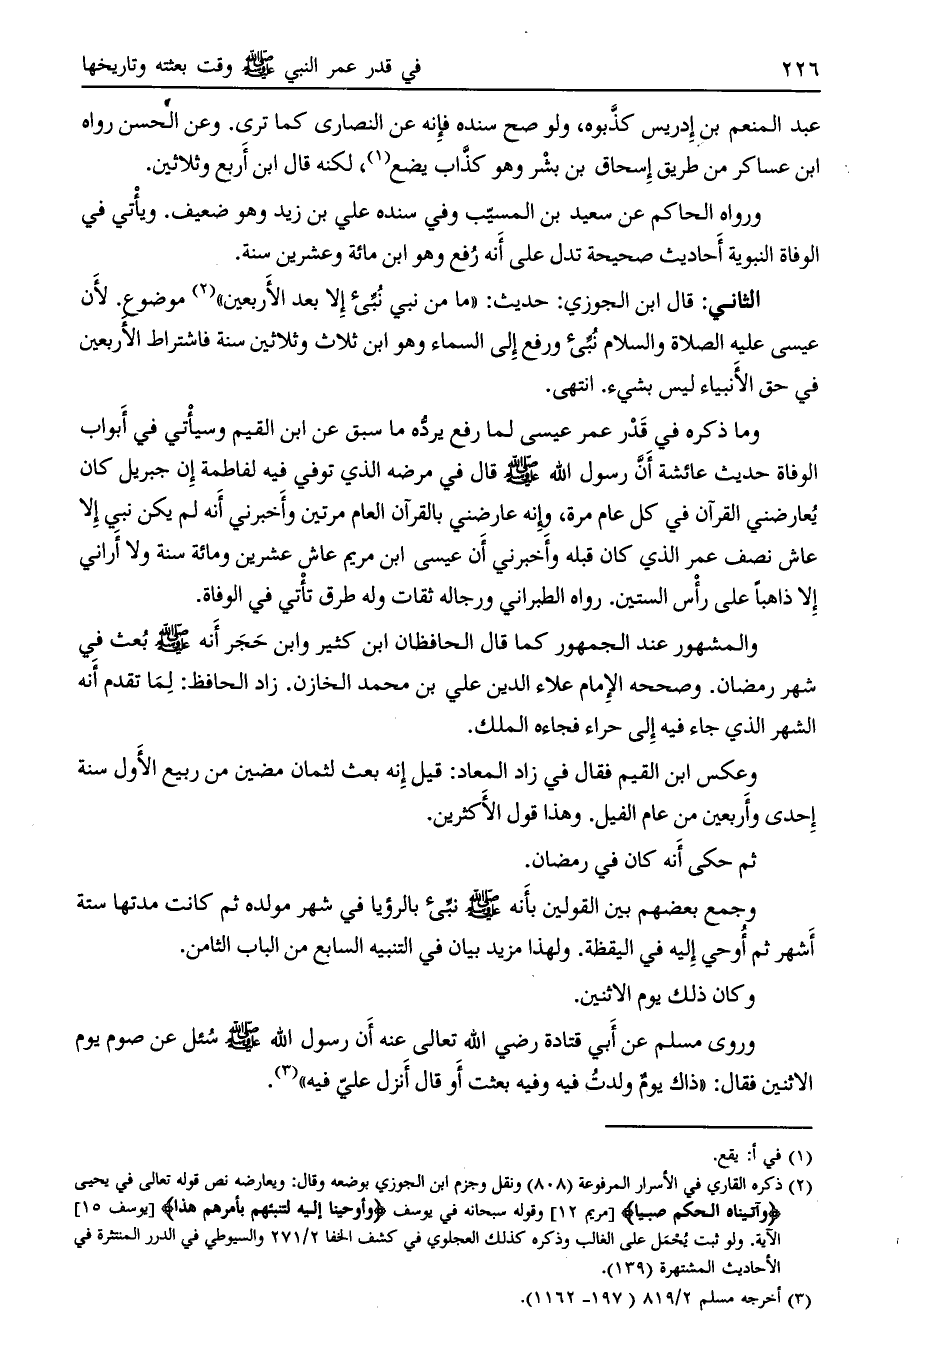 ٢٢٦ في قدر عمر النبي ﷺ وقت بعثته وتاريخها
عبد المنعم بن إدريس كذَّبوه، ولو صح سنده فإنه عن النصارى كما ترى. وعن الحسن رواه
ابن عساكر من طريق إسحاق بن بشْر وهو كذَّاب يضع(١)، لكنه قال ابن أربع وثلاثين.
ورواه الحاكم عن سعيد بن المسيّب وفي سنده علي بن زيد وهو ضعيف. ويأْتي في
الوفاة النبوية أَحاديث صحيحة تدل على أَنه رُفع وهو ابن مائة وعشرين سنة.
الثاني: قال ابن الجوزي: حديث: «ما من نبي نُبِّئ إلا بعد الأَربعين»(٢) موضوع. لأَن
عيسى عليه الصلاة والسلام نُبِّئ ورفع إلى السماء وهو ابن ثلاث وثلاثين سنة فاشتراط الأَربعين
في حق الأَنبياء ليس بشيء. انتهى.
وما ذكره في قَدْر عمر عيسى لما رفع يردُّه ما سبق عن ابن القيم وسيأْتي في أَبواب
الوفاة حديث عائشة أَنَّ رسول الله ﷺ قال في مرضه الذي توفي فيه لفاطمة إن جبريل كان
يُعارضني القرآن في كل عام مرة، وإنه عارضني بالقرآن العام مرتين وأَخبرني أَنه لم يكن نبي إلا
عاش نصف عمر الذي كان قبله وأَخبرني أَن عيسى ابن مريم عاش عشرين ومائة سنة ولا أَراني
إلا ذاهباً على رأْس الستين. رواه الطبراني ورجاله ثقات وله طرق تأْتي في الوفاة.
والمشهور عند الجمهور كما قال الحافظان ابن كثير وابن حَجَر أَنه ﷺ بُعث في
شهر رمضان. وصححه الإمام علاء الدين علي بن محمد الخازن. زاد الحافظ: لِمَا تقدم أَنه
الشهر الذي جاء فيه إلى حراء فجاءه الملك.
وعكس ابن القيم فقال في زاد المعاد: قيل إنه بعث لثمان مضين من ربيع الأَول سنة
إحدى وأَربعين من عام الفيل. وهذا قول الأَكثرين.
ثم حكى أَنه كان في رمضان.
وجمع بعضهم بين القولين بأَنه ﷺ نبِّئ بالرؤيا في شهر مولده ثم كانت مدتها ستة
أَشهر ثم أُوحي إليه في اليقظة. ولهذا مزيد بيان في التنبيه السابع من الباب الثامن.
وكان ذلك يوم الاثنين.
وروى مسلم عن أَبي قتادة رضي الله تعالى عنه أَن رسول الله ﷺ سُئل عن صوم يوم
الاثنين فقال: «ذاك يومٌ ولدتُ فيه وفيه بعثت أَو قال أنزل عليّ فيه»(٣).
(١) في أ: يقع.
(٢) ذكره القاري في الأسرار المرفوعة (٨٠٨) ونقل وجزم ابن الجوزي بوضعه وقال: ويعارضه نص قوله تعالى في يحيى
﴿وآتيناه الحكم صبيا﴾ [مريم ١٢] وقوله سبحانه في يوسف ﴿وأوحينا إليه لتنبئهم بأمرهم هذا﴾ [يوسف ١٥]
الآية. ولو ثبت يُحْمَل على الغالب وذكره كذلك العجلوي في كشف الخفا ٢٧١/٢ والسيوطي في الدرر المنتثرة في
الأحاديث المشتهرة (١٣٩).
(٣) أخرجه مسلم ٨١٩/٢ (١٩٧- ١١٦٢).